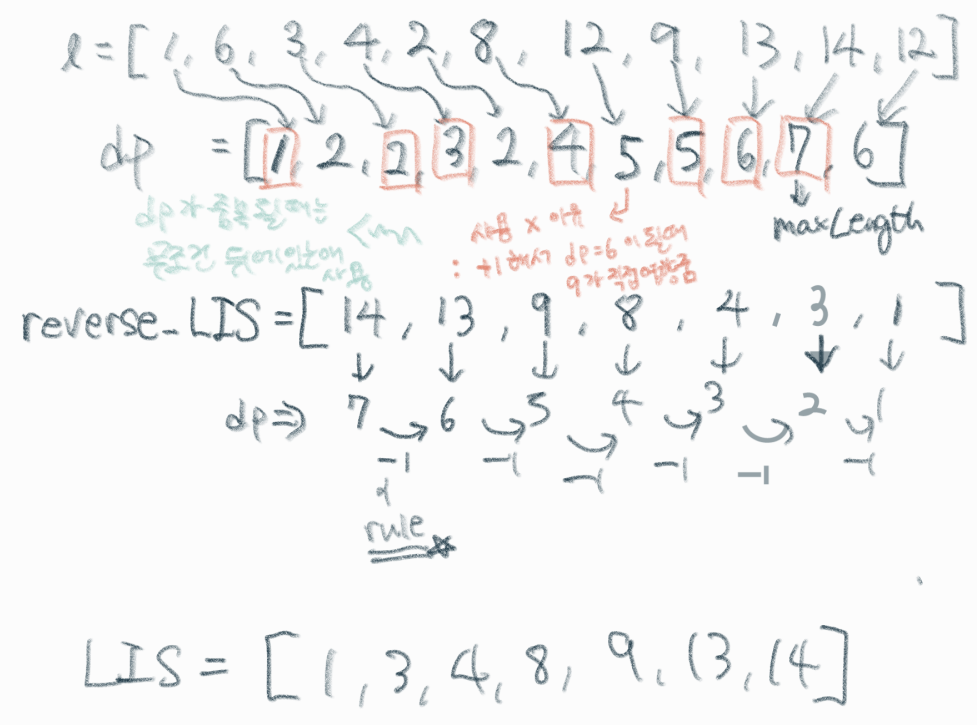 l = [1, 6, 3, 4, 2, 8, 12, 9, 13, 14, 12]
dp = [1, 2, 2, 3, 2, 4, 5, 5, 6, 7, 6]
maxLength
dp가 중복될때는
무조건 뒤에있는애
사용
사용 x 이유
: +1 해서 dp=6 이 될때
9가 직접영향줌
reverse_LIS = [14, 13, 9, 8, 4, 3, 1]
dp ⇒ 7 6 5 4 3 2 1
-1 -1 -1 -1 -1 -1
rule
LIS = [1, 3, 4, 8, 9, 13, 14]